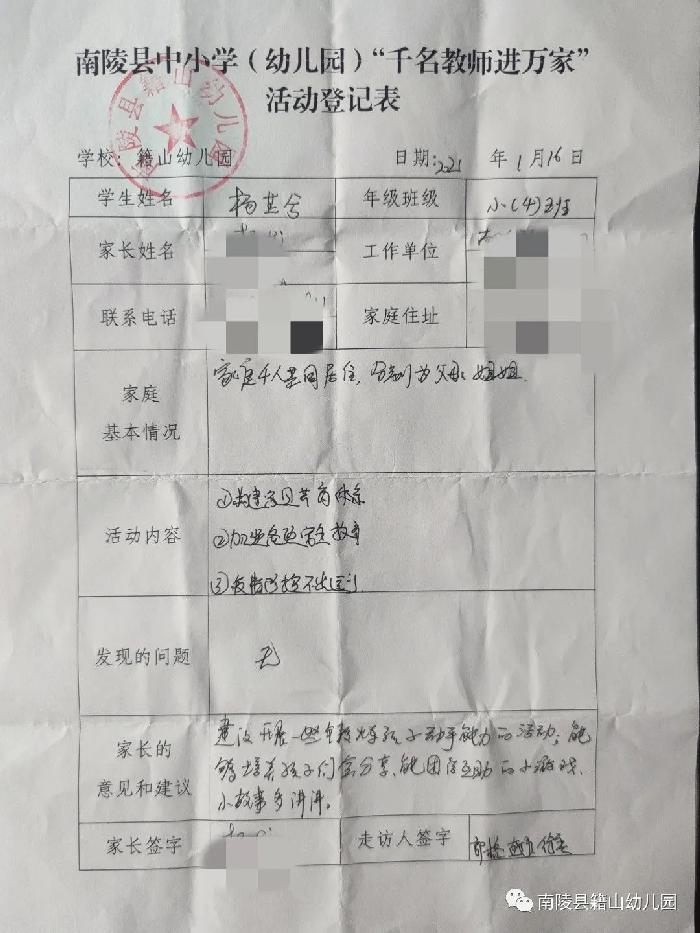 南陵县中小学（幼儿园）“千名教师进万家”
活动登记表
南陵县籍山幼儿园
学校：籍山幼儿园 日期：2021 年 1 月 16 日
学生姓名 杨 年级班级 小（4）班
家长姓名 工作单位
联系电话 家庭住址
家庭
基本情况
家庭 人共同居住，分别为父母、姐姐
活动内容
①构建 育体系
②加 安全教育
③ 不
发现的问题
无
家长的
意见和建议
建议开展一些锻炼孩子动手能力的活动；能
够培养孩子们会分享、能团结互助的小游戏、
小故事多讲讲。
家长签字 走访人签字
南陵县籍山幼儿园